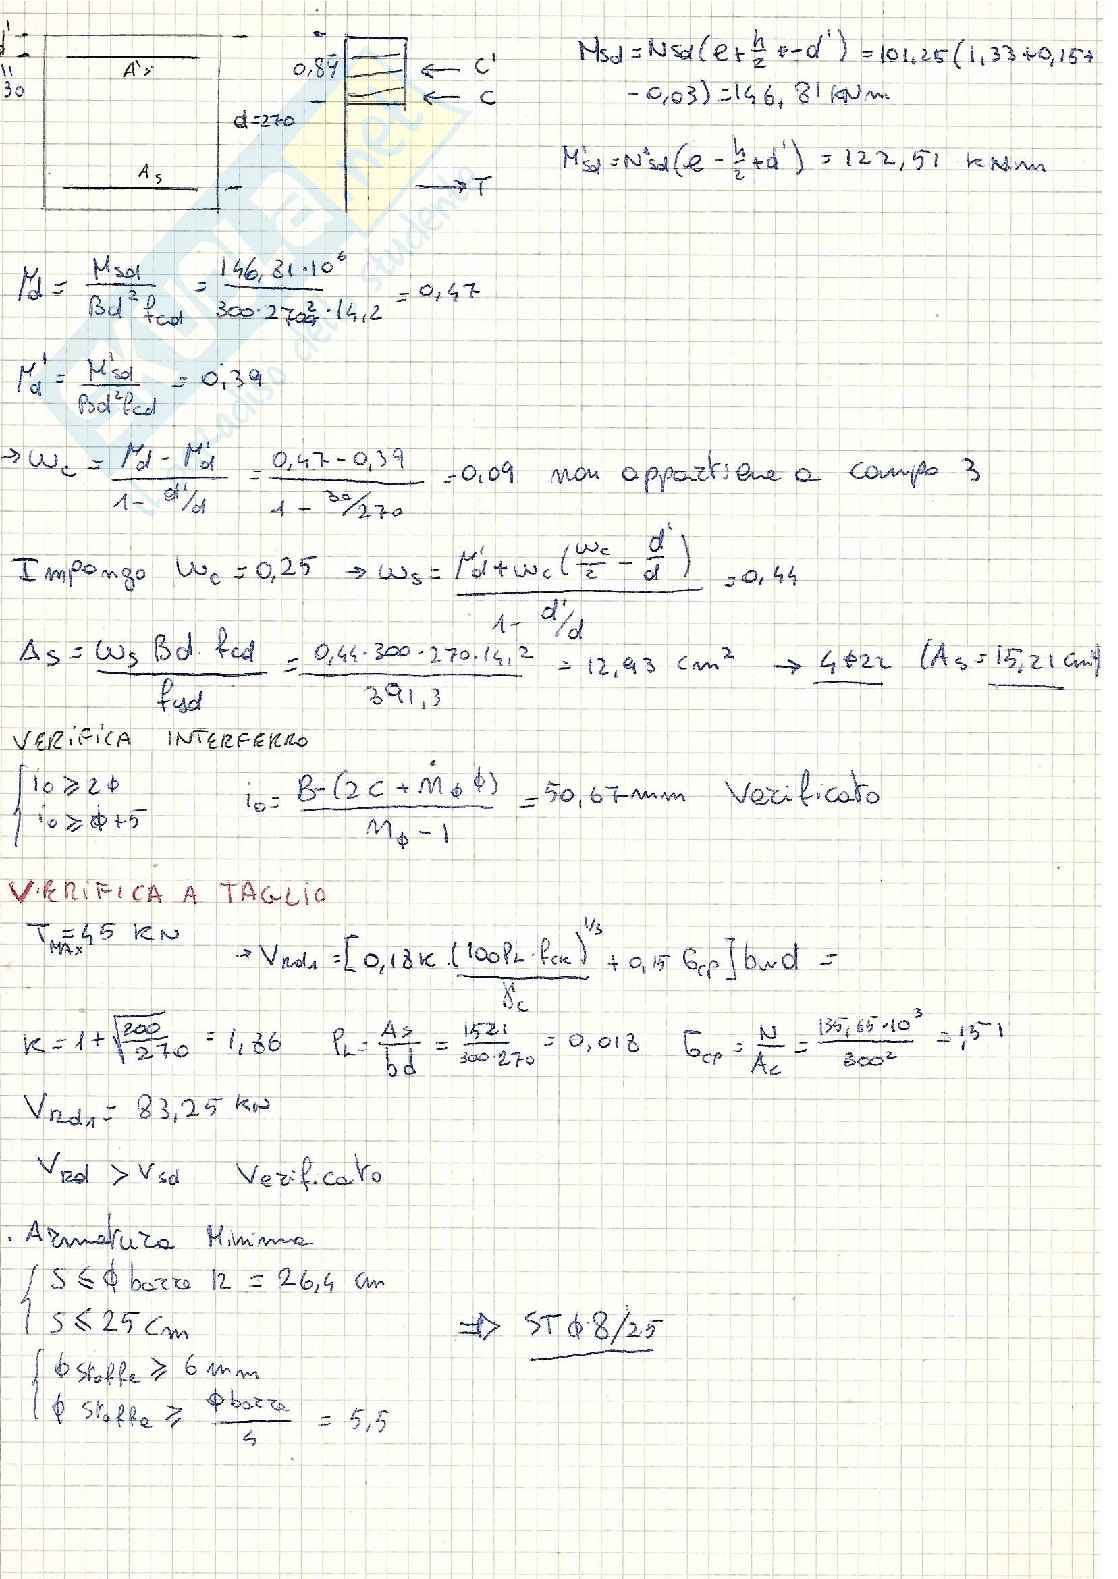 d'
=
30
A's
As
d=270
0,8y
← C'
← C
→ T
Msd = Nsd (e + h/2 - d') = 101,25 (1,33 + 0,15 +
- 0,03) = 146,81 kNm
M'sd = Nsd (e - h/2 + d') = 122,51 kNm
μd = Msd / Bd² fcd = 146,81·10⁶ / 300·270²·14,2 = 0,47
μ'd = M'sd / Bd² fcd = 0,39
→ ωc = μd - μ'd / 1 - d'/d = 0,47 - 0,39 / 1 - 30/270 = 0,09 non appartiene a campo 3
Impongo ωc = 0,25 → ωs = μ'd + ωc (ωc/2 - d'/d) / 1 - d'/d = 0,44
As = ωs Bd · fcd / fyd = 0,44·300·270·14,2 / 391,3 = 12,93 cm² → 4ϕ22 (As = 15,21 cm²)
VERIFICA INTERFERRO
{ i₀ ≥ 2ϕ
i₀ ≥ ϕ+5
i₀ = B - (2c + nϕ ϕ) / nϕ - 1 = 50,67 mm Verificato
VERIFICA A TAGLIO
TMAX = 45 KN → VRd1 = [0,18k · (100ρL · fck)^1/3 / γc + 0,15 σcp] bwd =
K = 1 + √200/270 = 1,86 ρL = As/bd = 1521 / 300·270 = 0,018 σcp = N/Ac = 135,65·10³ / 300² = 1,51
VRd1 = 83,25 KN
VRd > Vsd Verificato
. Armatura Minima
{ S ≤ ϕ barre 12 = 26,4 cm
S ≤ 25 cm ⇒ ST ϕ 8/25
{ ϕ staffe ≥ 6 mm
ϕ staffe ≥ ϕ barre / 4 = 5,5